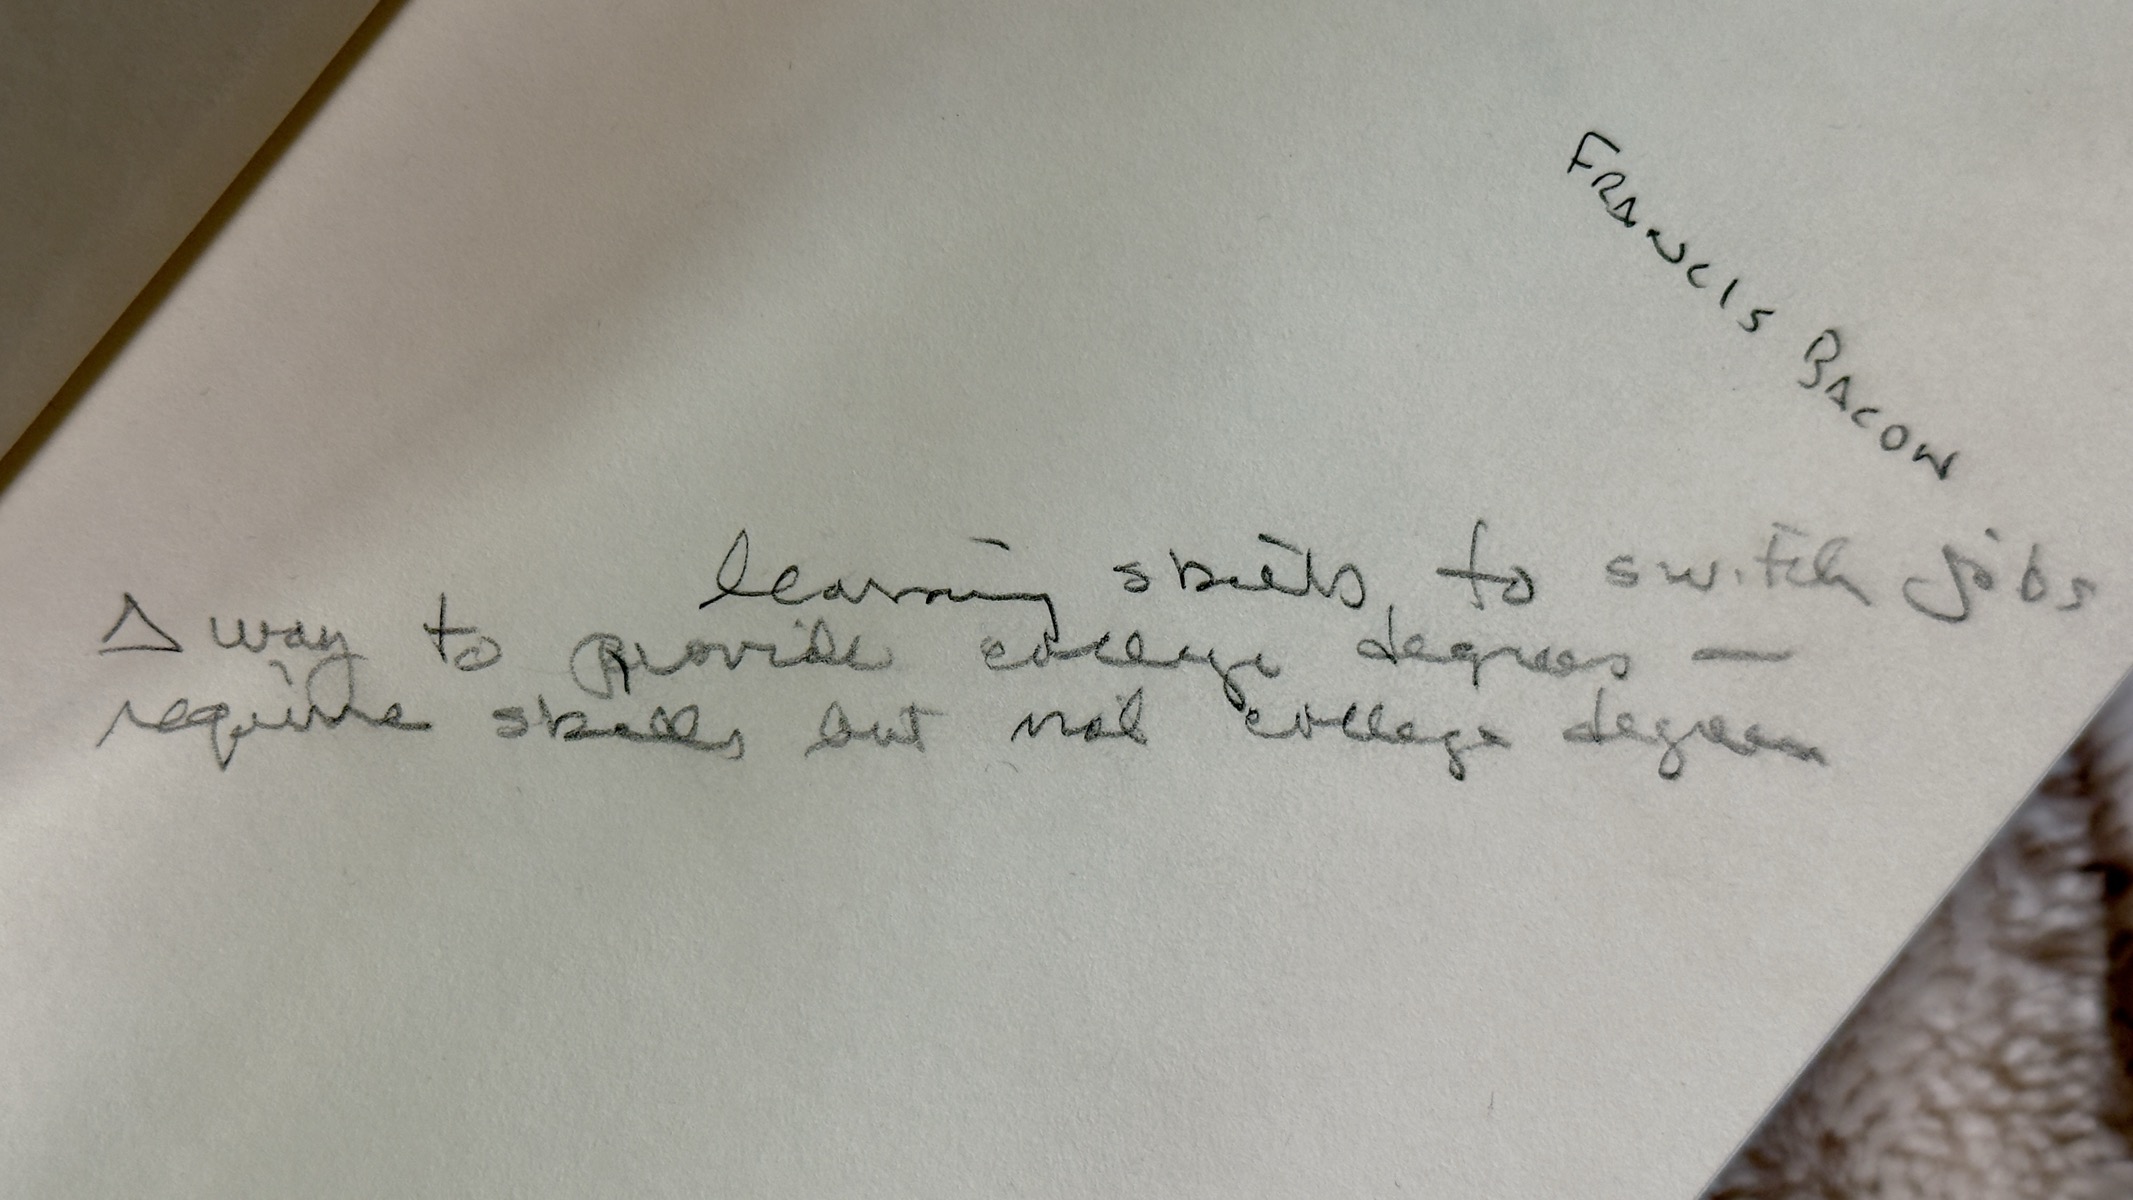 FRANCIS BACON
learning skills, to switch jobs
Δ way to provide college degrees —
require skills but not college degrees